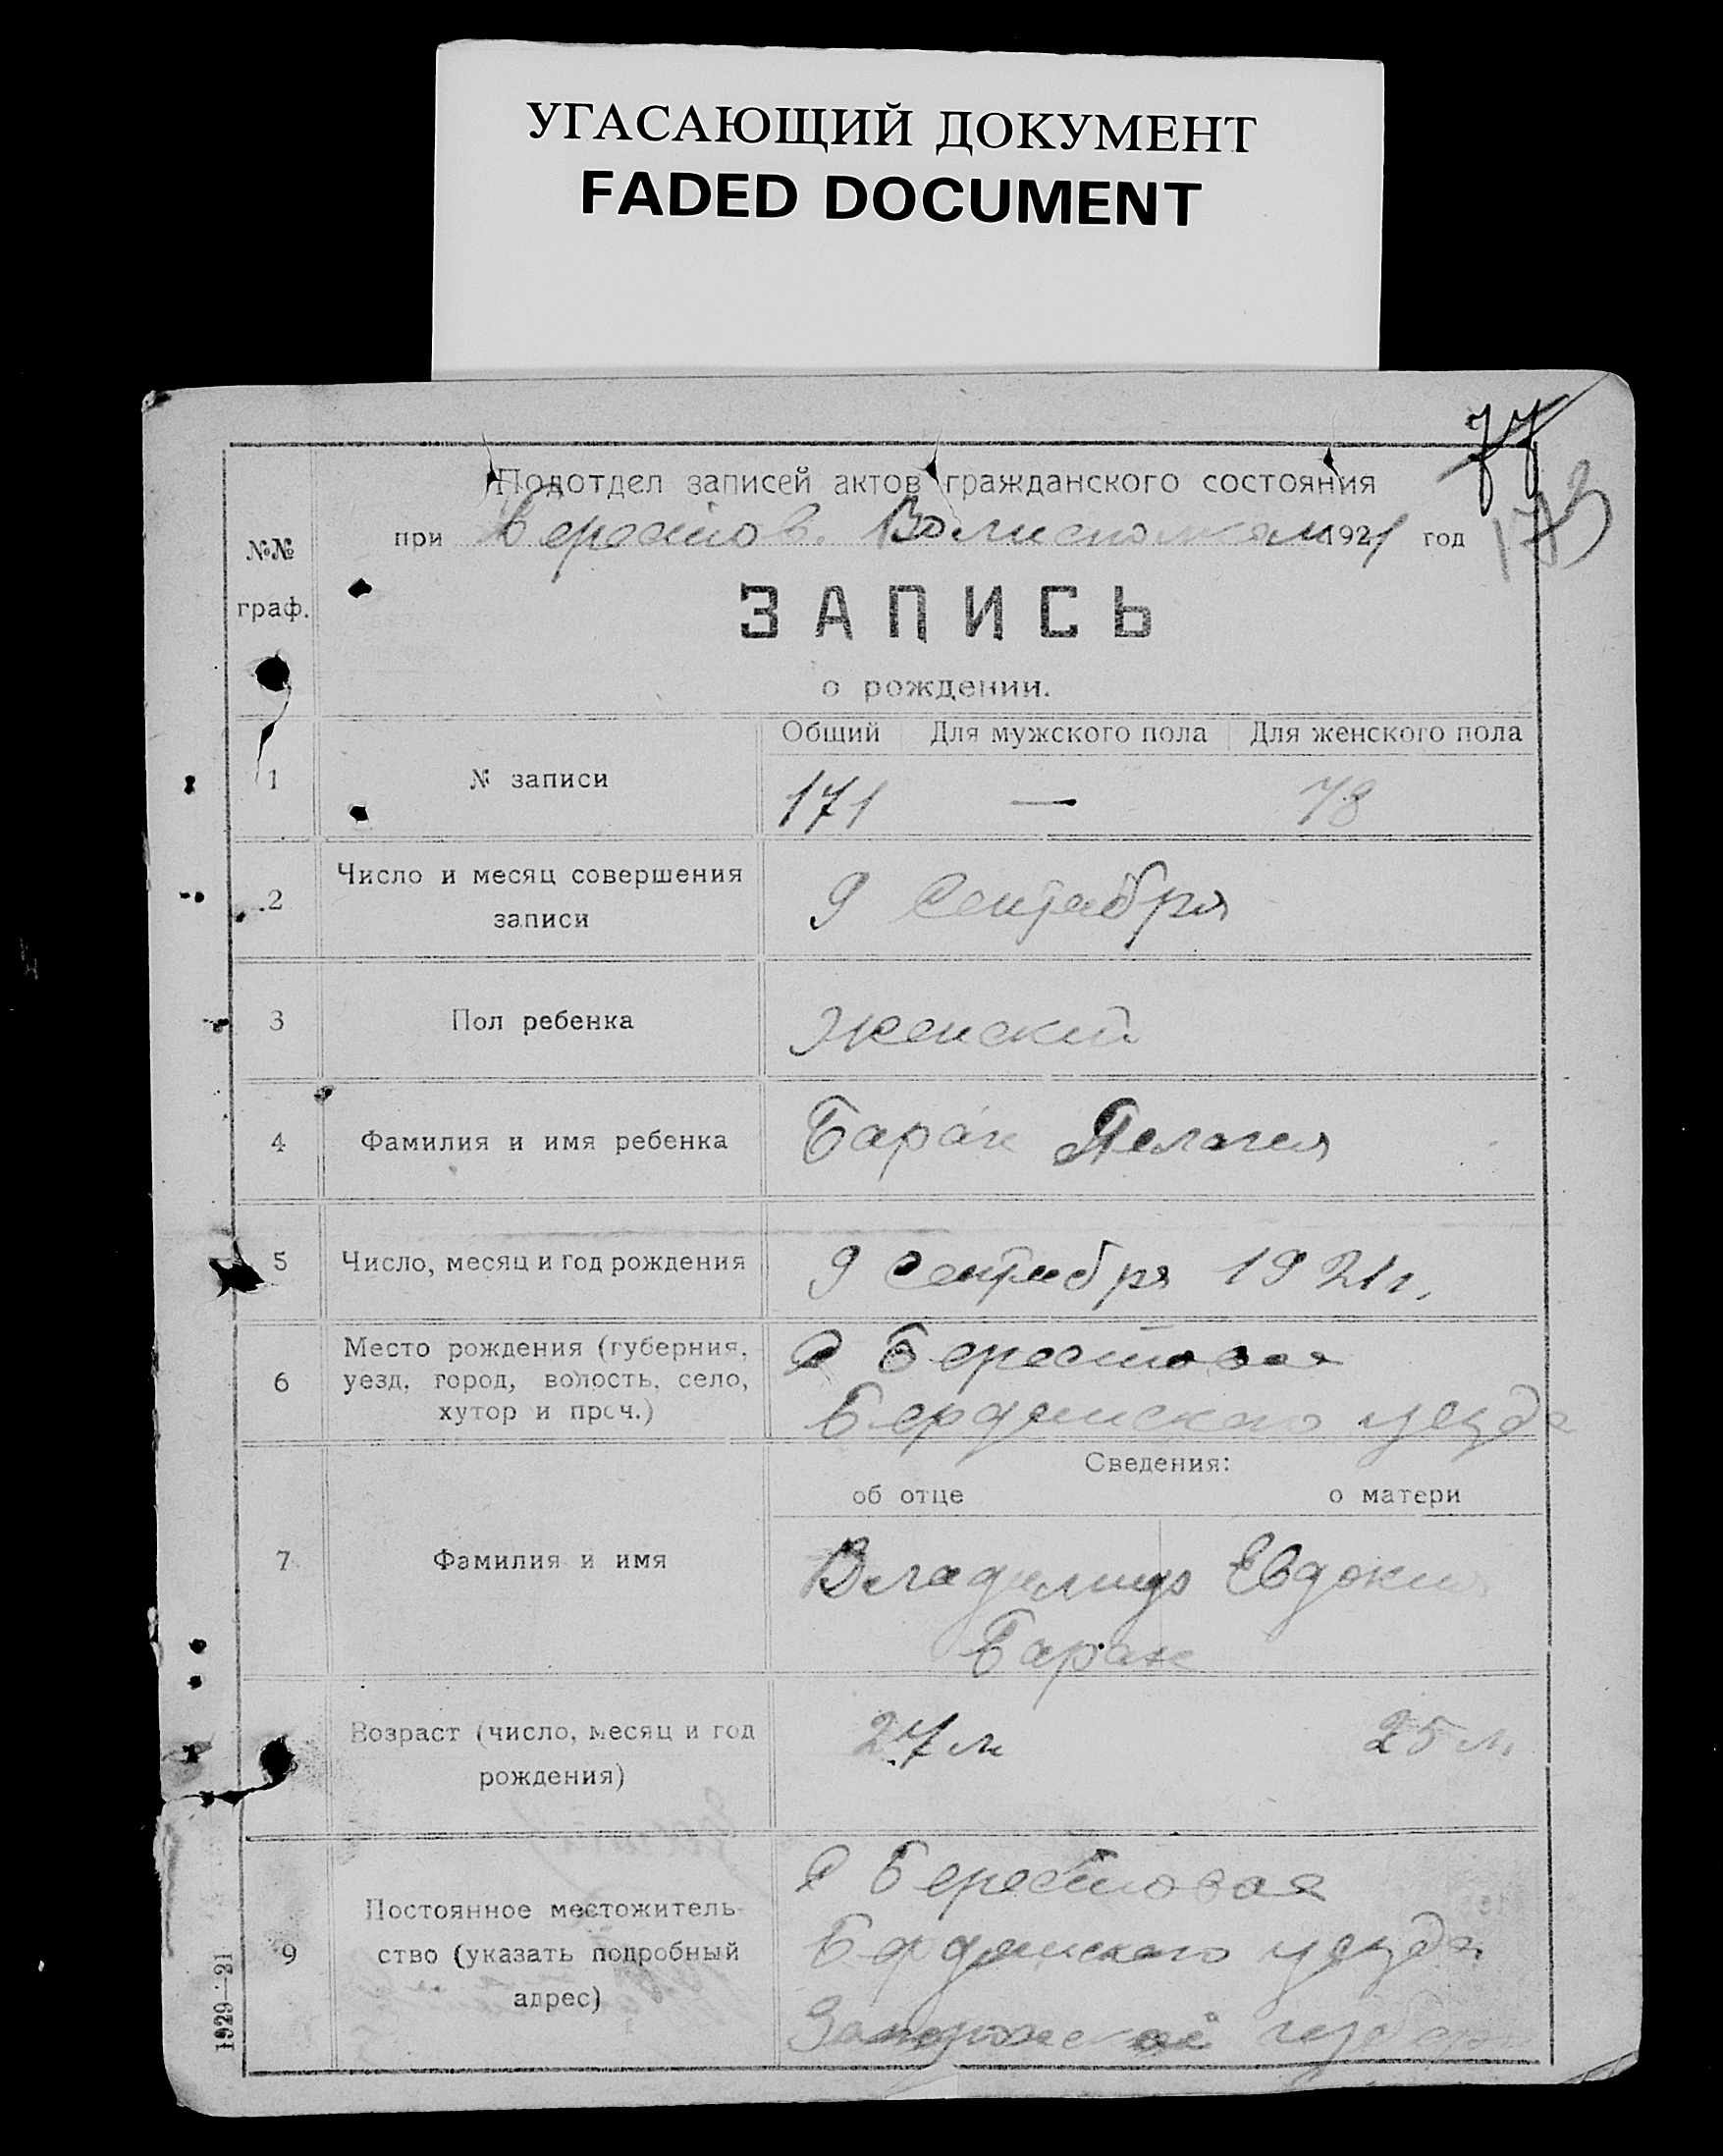 УГАСАЮЩИЙ ДОКУМЕНТ
FADED DOCUMENT
77
173
Подотдел записей актов гражданского состояния
при Берестов. Волисполкоме 1921 год
№№ граф.
ЗАПИСЬ
о рождении.
Общий Для мужского пола Для женского пола
1 № записи 171 — 78
2 Число и месяц совершения записи 9 Сентября
3 Пол ребенка Женский
4 Фамилия и имя ребенка Баран Пелагея
5 Число, месяц и год рождения 9 Сентября 1921 г.
6 Место рождения (губерния, уезд, город, волость, село, хутор и проч.) С Берестовая
Бердянского уезда
Сведения:
об отце о матери
7 Фамилия и имя Владимир Евдокия
Баран
Возраст (число, месяц и год рождения) 27 л 25 л.
9 Постоянное местожительство (указать подробный адрес) С Берестовая
Бердянского уезда
Запорожской губерн
1929—21